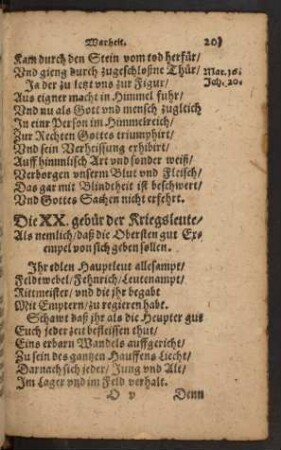 Warheit. 203
Kam durch den Stein vom tod herfür/
Vnd gieng durch zugeschloßne Thür/ Mar. 16.
Ja der zu letzt vns zur Figur/ Joh. 20.
Aus eigner macht in Himmel fuhr/
Vnd nu als Gott vnd mensch zugleich
In einr Person im Himmelreich/
Zur Rechten Gottes triumphirt/
Vnd sein Verheissung exhibirt/
Auff himmlisch Art vnd sonder weiß/
Verborgen vnserm Blut vnd Fleisch/
Das gar mit Blindtheit ist beschwert/
Vnd Gottes Sachen nicht erfehrt.
Die XX. gebür der Kriegsleute/
Als nemlich/ daß die Obersten gut Ex-
empel von sich geben sollen.
Ihr edlen Hauptleut allesampt/
Feldtwebel/ Fehnrich/ Leutenampt/
Rittmeister/ vnd die jhr begabt
Mit Emptern/ zu regieren habt.
Schawt daß jhr als die Heupter gut
Euch jeder zeit befleissen thut/
Eins erbarn Wandels auffgericht/
Zu sein des gantzen Hauffens Liecht/
Darnach sich jeder/ Jung vnd Alt/
Im Lager vnd im Feld verhalt.
O v Denn